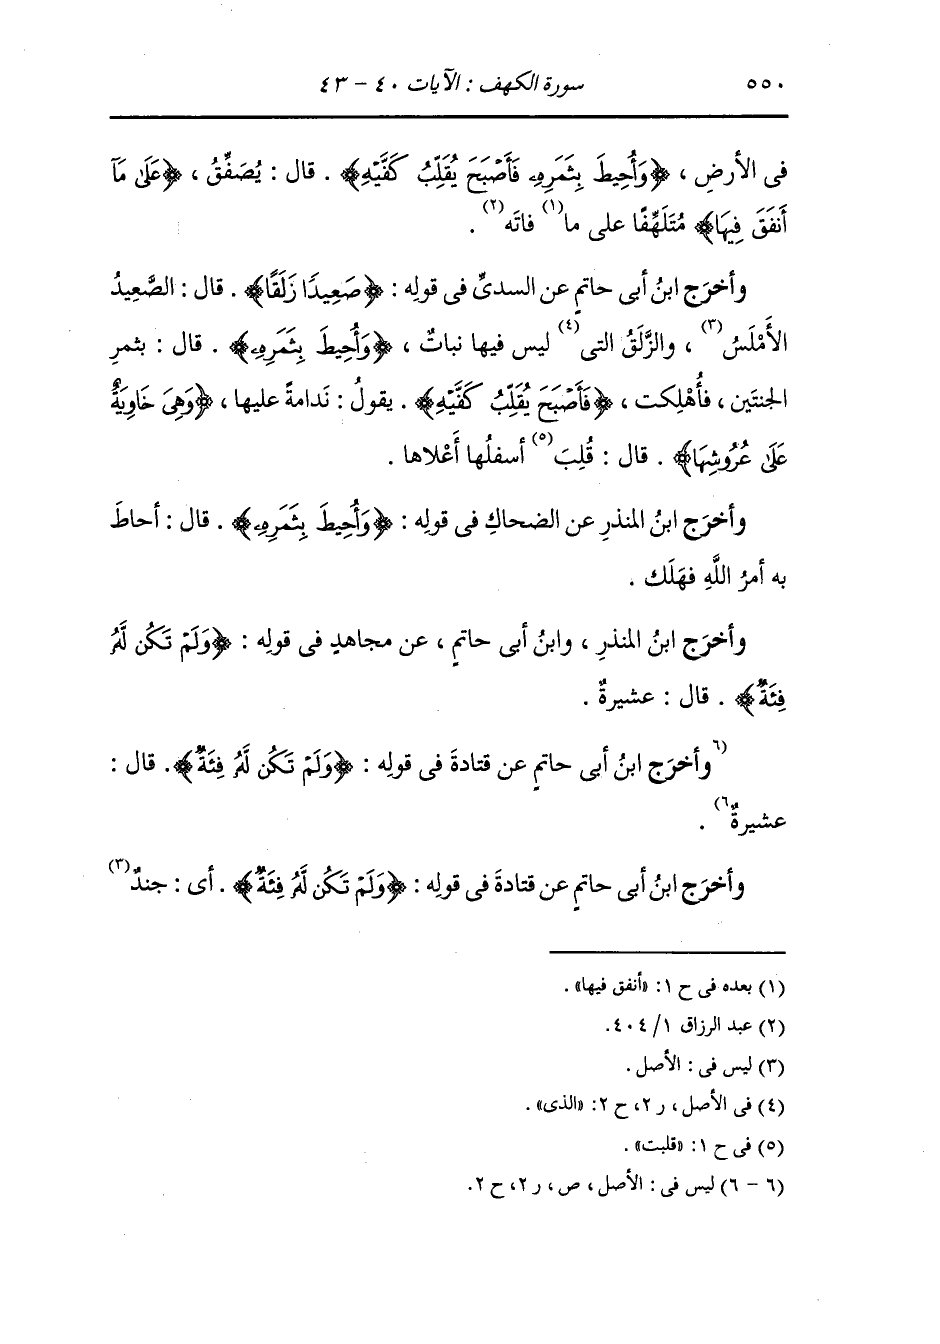 ٥٥٠ سورة الكهف : الآيات ٤٠ - ٤٣
فى الأرضِ ، ﴿وَأُحِيطَ بِثَمَرِهِۦ فَأَصْبَحَ يُقَلِّبُ كَفَّيْهِ﴾ . قال : يُصَفِّقُ ، ﴿عَلَىٰ مَآ
أَنفَقَ فِيهَا﴾ مُتَلَهِّفًا على ما(١) فاتَه(٢) .
وأخرَج ابنُ أبى حاتمٍ عن السدىِّ فى قولِه : ﴿صَعِيدًا زَلَقًا﴾ . قال : الصَّعِيدُ
الأَمْلَسُ(٣) ، والزَّلَقُ التى(٤) ليس فيها نباتٌ ، ﴿وَأُحِيطَ بِثَمَرِهِۦ﴾ . قال : بثمرِ
الجنتَين ، فأُهْلِكت ، ﴿فَأَصْبَحَ يُقَلِّبُ كَفَّيْهِ﴾ . يقولُ : نَدامةً عليها ، ﴿وَهِىَ خَاوِيَةٌ
عَلَىٰ عُرُوشِهَا﴾ . قال : قُلِبَ(٥) أسفلُها أَعْلاها .
وأخرَج ابنُ المنذرِ عن الضحاكِ فى قولِه : ﴿وَأُحِيطَ بِثَمَرِهِۦ﴾ . قال : أحاطَ
به أمرُ اللَّهِ فهَلَك .
وأخرَج ابنُ المنذرِ ، وابنُ أبى حاتمٍ ، عن مجاهدٍ فى قولِه : ﴿وَلَمْ تَكُن لَّهُۥ
فِئَةٌ﴾ . قال : عشيرةٌ .
(٦وأخرَج ابنُ أبى حاتمٍ عن قتادةَ فى قولِه : ﴿وَلَمْ تَكُن لَّهُۥ فِئَةٌ﴾ . قال :
عشيرةٌ٦) .
وأخرَج ابنُ أبى حاتمٍ عن قتادةَ فى قولِه : ﴿وَلَمْ تَكُن لَّهُۥ فِئَةٌ﴾ . أى : جندٌ(٣)
(١) بعده فى ح ١: «أنفق فيها» .
(٢) عبد الرزاق ١/ ٤٠٤.
(٣) ليس فى : الأصل .
(٤) فى الأصل ، ر ٢، ح ٢: «الذى» .
(٥) فى ح ١: «قلبت» .
(٦ - ٦) ليس فى : الأصل ، ص ، ر ٢، ح ٢.